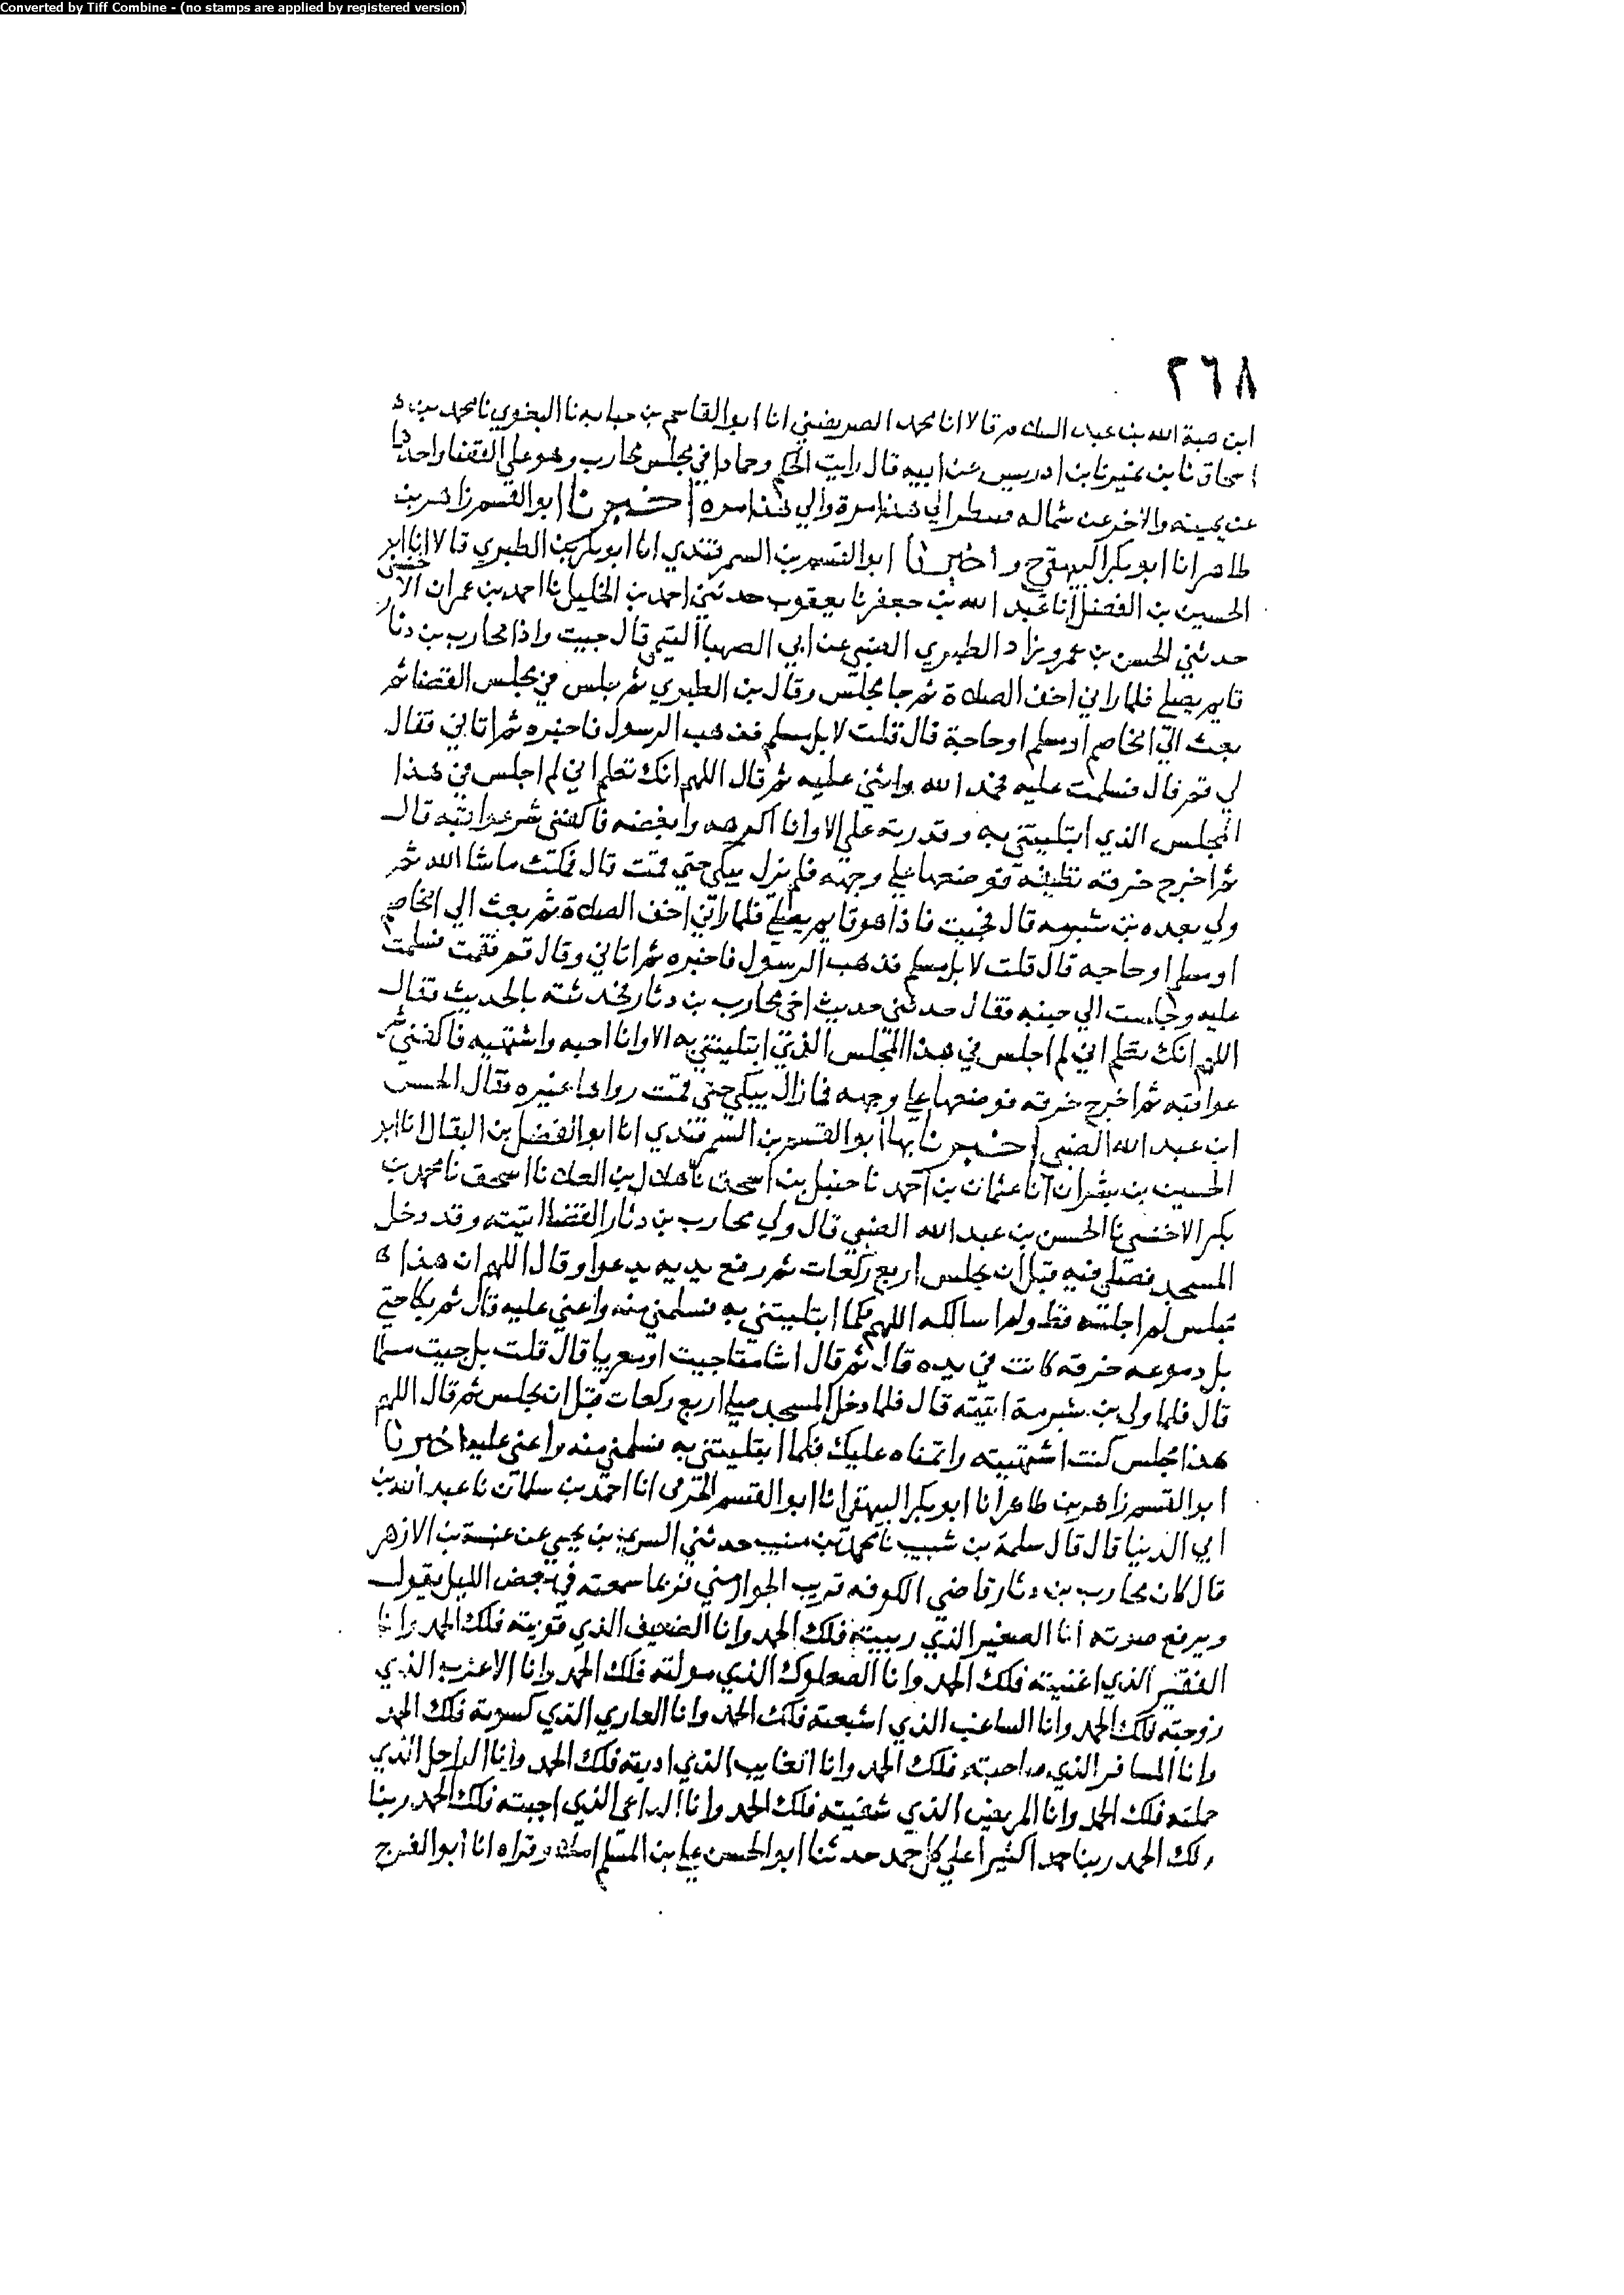 Converted by Tiff Combine - (no stamps are applied by registered version)
٢٦٨
ابن هبة الله بن عبد السلام قالا انا محمد الصريفيني انا ابو القاسم بن حبابه نا البغوي نا محمد بن
اسحاق نا بن نمير نا بن ادريس عن ابيه قال رايت الحكم وحمادا في مجلس محارب وهو على القضا واحدهما
عن يمينه والاخر عن شماله فينظر الي هذا مرة والي هذا مره اخبرنا ابو القسم زاهر بن
طاهر انا ابو بكر البيهقي ح واخبرنا ابو القسم بن السمرقندي انا ابو بكر بن الطبري قالا انا ابو
الحسين بن الفضل انا عبد الله بن جعفر نا يعقوب حدثني احمد بن الخليل نا احمد بن عمران الاخنسي
حدثني الحسن بن عمرو زاد الطبري العتبي عن ابي الصهبا التيمي قال جيت واذا محارب بن دثار
قايم يصلي فلما راني اخف الصلاة ثم جا مجلس وقال بن الطبري ثم جلس في مجلس القضا ثم
بعث الي اتخاصم او مسلم او حاجة قال قلت لا بل مسلم فذهب الرسول فاخبره ثم اتاني فقال
لي قم قال فسلمت عليه فحمد الله واثنى عليه ثم قال اللهم انك تعلم اني لم اجلس في هذا
المجلس الذي ابتليتني به وقدرته علي الا وانا اكرهه وابغضه فاكفني شر عواقبه قال
ثم اخرج خرقه نظيفه فوضعها علي وجهه فلم يزل يبكي حتي قمت قال فمكثت ماشا الله ثم
ولي بعده بن شبرمه قال فجيت فاذا هو قايم يصلي فلما راني اخف الصلاة ثم بعث الي اتخاصم
او مسلم او حاجه قال قلت لا بل مسلم فذهب الرسول فاخبره ثم اتاني وقال قم فقمت فسلمت
عليه وجلست الي جنبه فقال حدثني حديث اخي محارب بن دثار فحدثته بالحديث فقال
اللهم انك تعلم اني لم اجلس في هذا المجلس الذي ابتليتني به الا وانا احبه واشتهيه فاكفني شر
عواقبه ثم اخرج خرقه فوضعها علي وجهه فما زال يبكي حتي قمت رواها غيره فقال الحسن
ابن عبد الله الضبي اخبرنا بها ابو القسم بن السمرقندي انا ابو الفضل بن البقال انا ابو
الحسين بن بشران انا عثمان بن احمد نا حنبل بن اسحق نا هلال بن العلا نا اسحق نا محمد بن
بكر الاخنسي نا الحسن بن عبد الله الضبي قال ولي محارب بن دثار القضا اتيته وقد دخل
المسجد فصلي فيه قبل ان يجلس اربع ركعات ثم رفع يديه يدعوا وقال اللهم ان هذا
مجلس لم اجلسه قط ولم اسالكه اللهم فكما ابتليتني به فسلمني منه واعني عليه قال ثم بكا حتي
بل دموعه خرقه كانت في يده قال ثم قال اشامتا جيت او معزيا قال قلت بل جيت مسلما
قال فلما ولي بن شبرمة اتيته قال فلما دخل المسجد صلي اربع ركعات قبل ان يجلس ثم قال اللهم
هذا مجلس كنت اشتهيته واتمناه عليك فكما ابتليتني به فسلمني منه واعني عليه اخبرنا
ابو القسم زاهر بن طاهر انا ابو بكر البيهقي انا ابو القسم الحرفي انا احمد بن سلمان نا عبد الله بن
ابي الدنيا قال قال سلمة بن شبيب نا محمد بن منيب حدثني السري بن يحيي عن عنبسة بن الازهر
قال كان محارب بن دثار قاضي الكوفه قريب الجوار مني فربما سمعته في بعض الليل يقول
ويرفع صوته انا الصغير الذي ربيته فلك الحمد وانا الضعيف الذي قويته فلك الحمد وانا
الفقير الذي اغنيته فلك الحمد وانا الصعلوك الذي مولته فلك الحمد وانا الاعزب الذي
زوجته فلك الحمد وانا الساغب الذي اشبعته فلك الحمد وانا العاري الذي كسوته فلك الحمد
وانا المسافر الذي صاحبته فلك الحمد وانا الغايب الذي اديته فلك الحمد وانا الراجل الذي
حملته فلك الحمد وانا المريض الذي شفيته فلك الحمد وانا الداعي الذي اجبته فلك الحمد ربنا
ولك الحمد ربنا حمدا كثيرا علي كل حمد حدثنا ابو الحسن علي بن المسلم املاء وقراه انا ابو الفرج